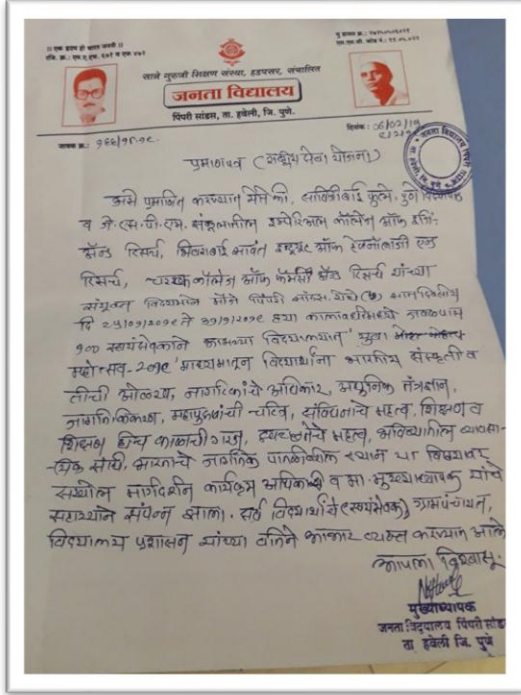 || एक हृदय हो भारत जननी ||
साने गुरुजी शिक्षण संस्था, हडपसर, संचालित
जनता विद्यालय
पिंपरी सांडस, ता. हवेली, जि. पुणे.
जावक क्र.: १६६/१८-१९ दिनांक:
प्रमाणपत्र (राष्ट्रीय सेवा योजना)
असे प्रमाणित करण्यात येते की, सावित्रीबाई फुले, पुणे विद्यापीठ
व जे.एस.पी.एम. संकुलातील इम्पेरिअल कॉलेज ऑफ इंजि.
अँड रिसर्च, भिवराबाई सावंत इन्स्टिट्यूट ऑफ टेक्नोलॉजी एन्ड
रिसर्च, कॉलेज ऑफ कॉमर्स अँड रिसर्च यांच्या
संयुक्त विद्यमाने मौजे पिंपरी सांडस येथे (७) सात दिवसीय
दि २५/०१/२०१९ ते ३१/१/२०१९ ह्या कालावधीमध्ये जवळपास
१०० स्वयंसेवकाने आमच्या विद्यालयात 'युवा
महोत्सव २०१९' माध्यमातून विद्यार्थांना भारतीय संस्कृती व
तीची ओळख, नागरिकांचे अधिकार, आधुनिक तंत्रज्ञान,
जागतिकिकरण, महापुरुषांची चरित्र, संविधानाचे महत्व, शिक्षण व
शिक्षण हीच काळाची गरज, स्वच्छतेचे महत्व, भविष्यातील व्यावसा-
-यिक संधी, भारताचे जागतिक पातळीवरील स्थान या विषयावर
सखोल मार्गदर्शन कार्यक्रम अधिकारी व मा. मुख्याध्यापक यांचे
सहाय्याने संपन्न झाला. सर्व विद्यार्थांचे (स्वयंसेवक) ग्रामपंचायत,
विद्यालय प्रशासन यांच्या वतिने आभार व्यक्त करण्यात आले
आपला विश्वासू.
मुख्याध्यापक
जनता विद्यालय पिंपरी सांडस
ता. हवेली जि. पुणे